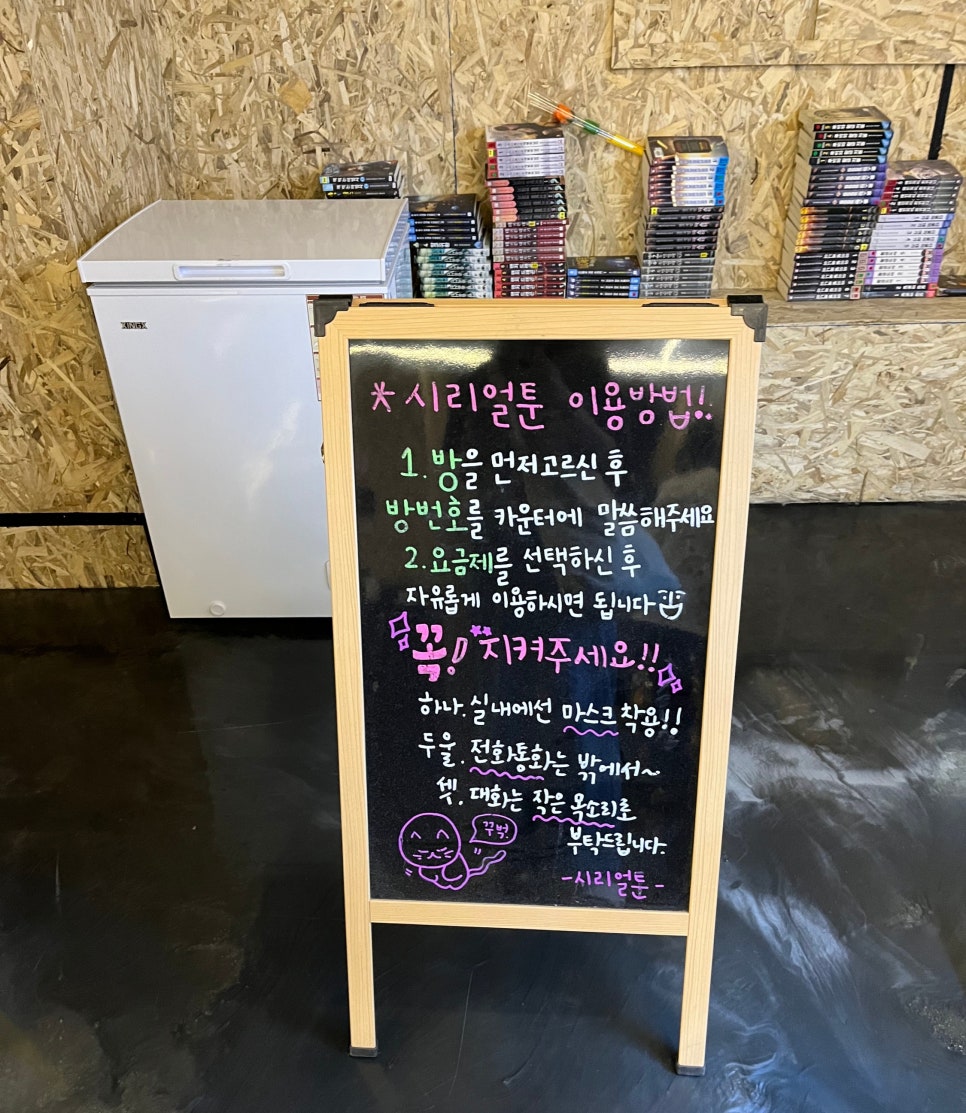 KINGX
* 시리얼툰 이용방법!!
1. 방을 먼저고르신 후
방번호를 카운터에 말씀해주세요
2. 요금제를 선택하신 후
자유롭게 이용하시면 됩니다
꼭! 지켜주세요!!
하나. 실내에선 마스크 착용!!
두울. 전화통화는 밖에서~
셋. 대화는 작은 목소리로
부탁드립니다.
꾸벅.
-시리얼툰-